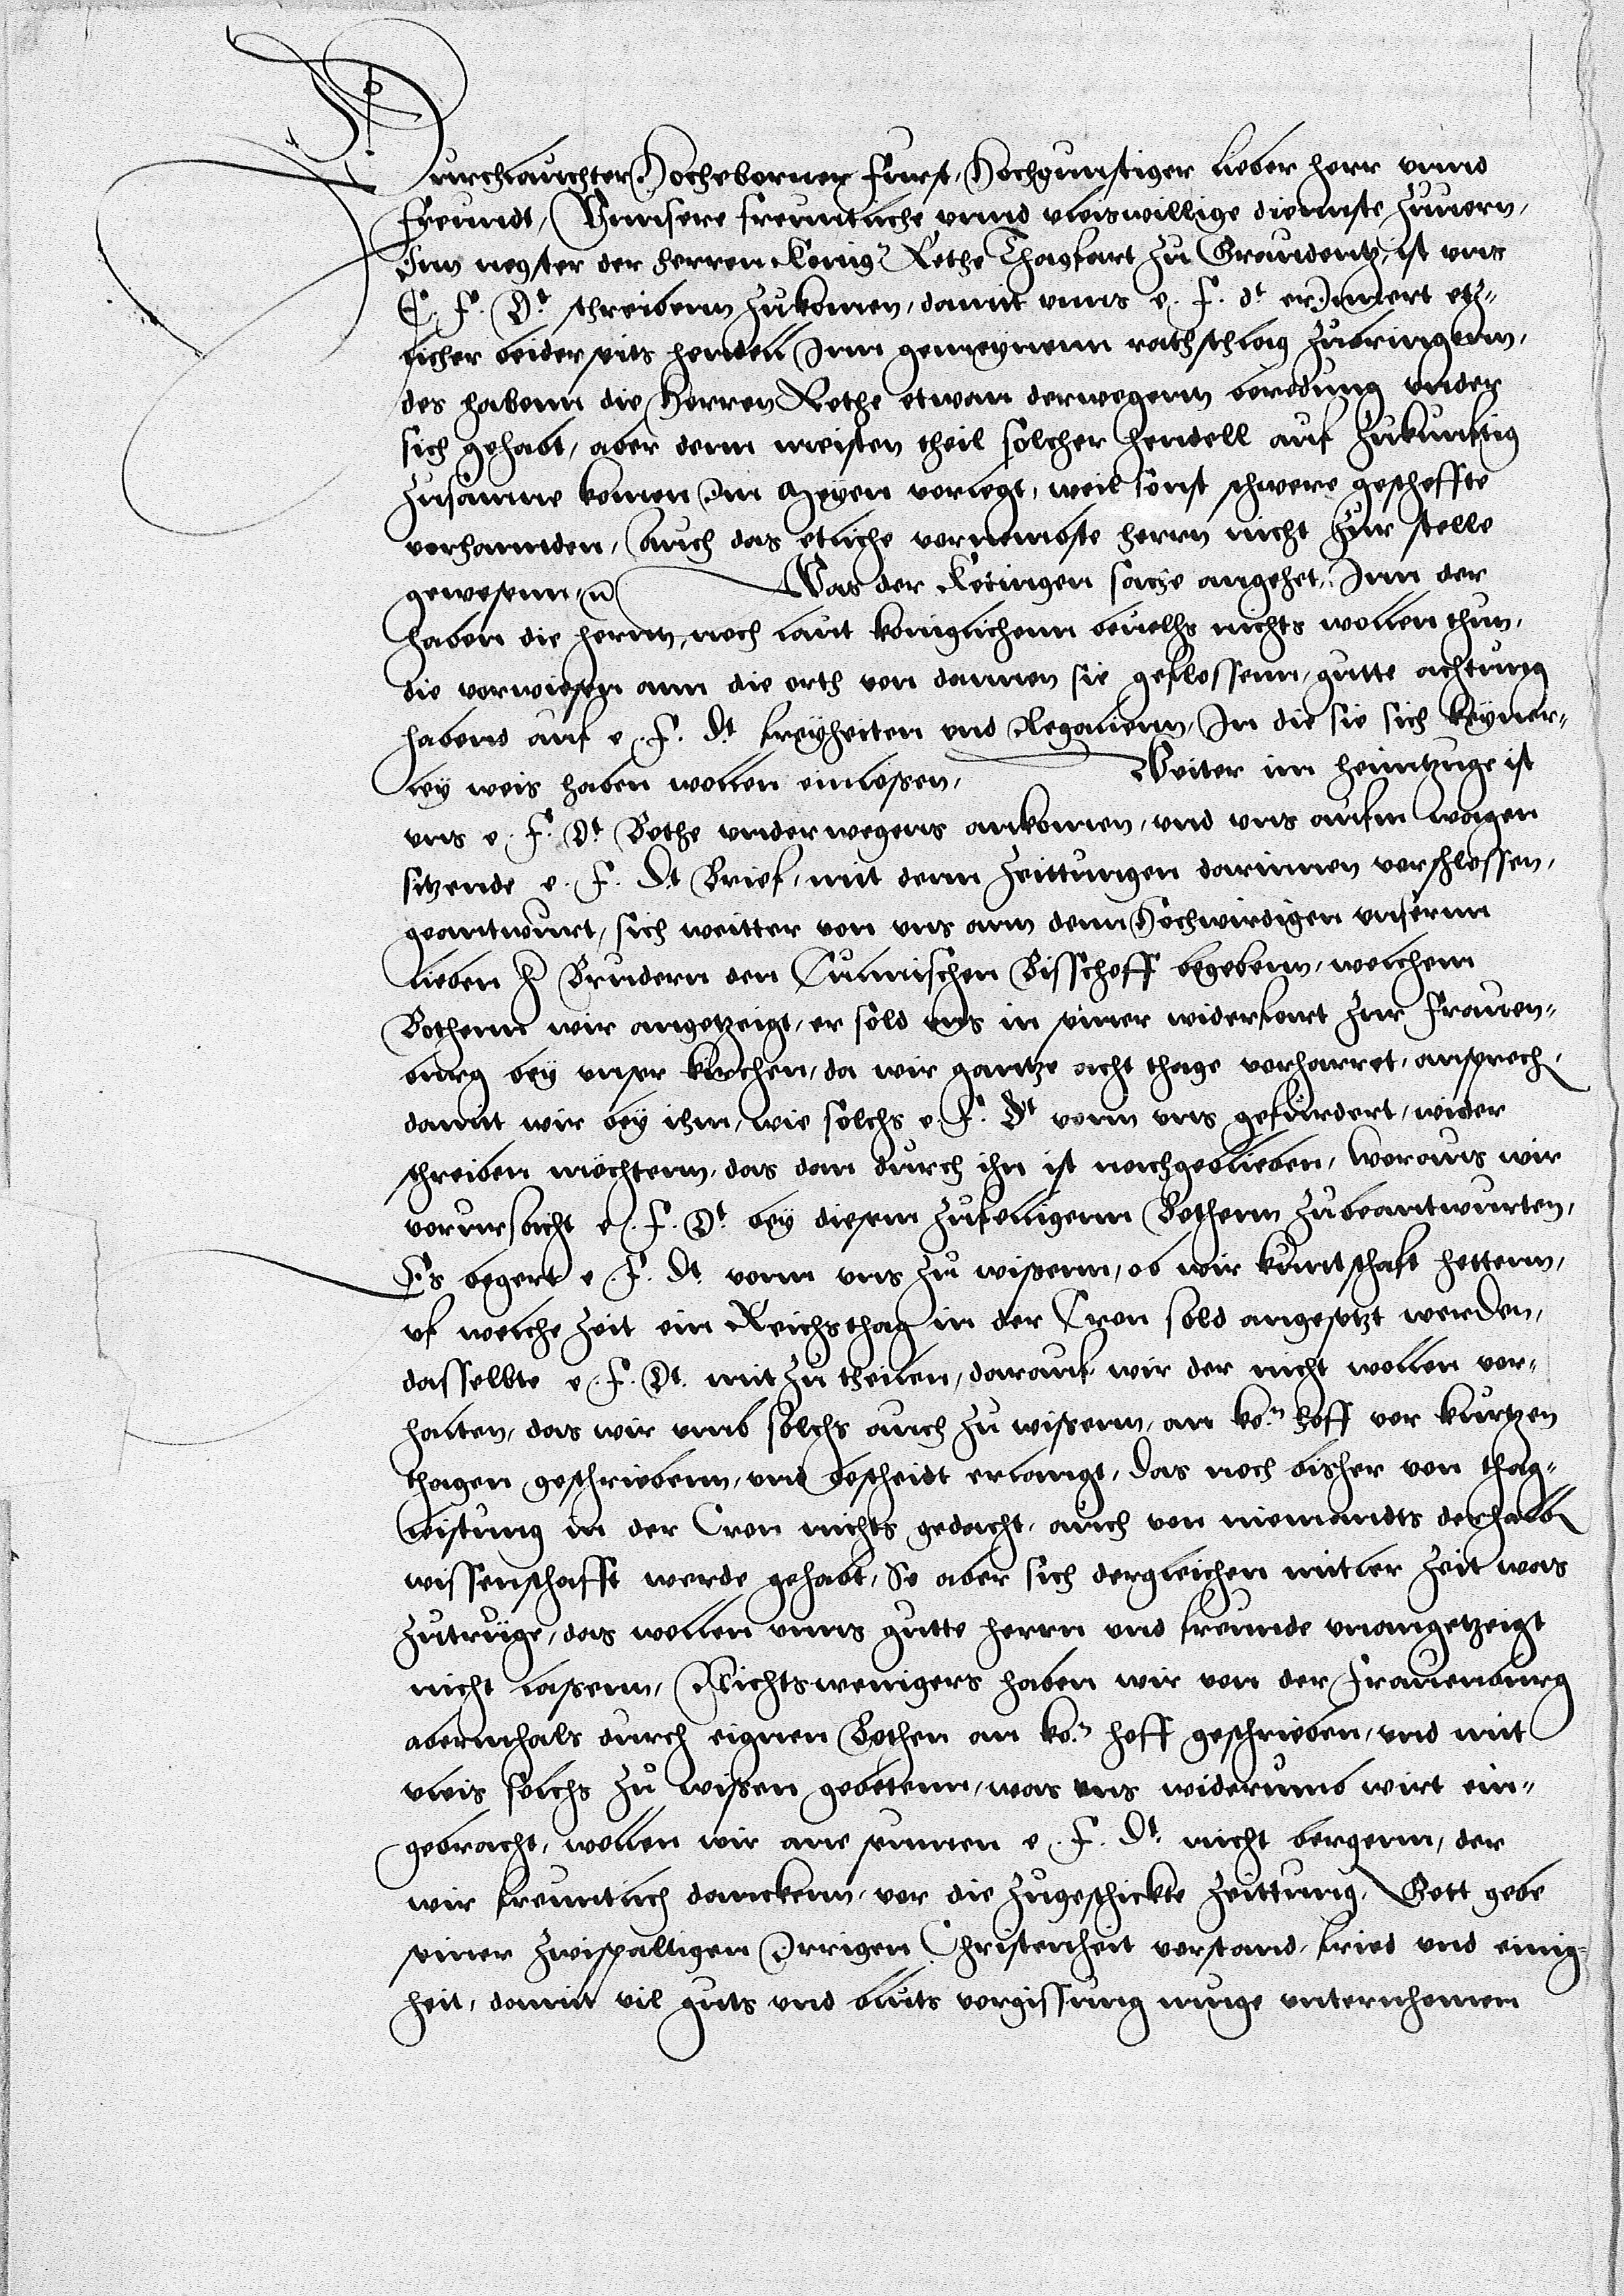 Durchlauchter Hochgeborner Furst, Hochgunstiger lieber herr vnnd
Freundt, Vnnsere freuntliche vnnd vleiswillige diennste zuuorn,
Inn negster der herren Konig: Rethe Thagfart zu Graudentz, ist vns
E. F. Dt schreibenn zukomen, damit vnns e. f. dt erJnnert etz-
licher beiderseits hendell Inn gemeynenn rathschlag zubringenn,
des habenn die Herren Rethe etwan derwegenn beredung vnder
sich gehabt, aber denn meisten theil solcher hendell auf zukunftig
zusamne komen Im Meyen vorlegt, weil sonst schwere gescheffte
vorhannden, auch das etliche vornembste herrn nicht zur stelle
gewesenn, Was der Retingen sache angehet, Inn der
haben die herrn, noch laut koniglichenn beuelhs nichts wollen thun,
die vorwiesen ann die orth von dannen sie geflossenn, gutte achtung
habend auf e. f. dt freyheiten vnd Regalienn, In die sie sich keyner-
ley weis haben wollen einlassen, Weiter im heimtzuge ist
vns e. f. Dt Bothe vnderwegens ankomen, vnd vns aufm wagen
sitzende e. f. Dt Brief, mit denn zeittungen darinnen vorschlossen,
geantwurt, sich weitter von vns ann denn Hochwirdigen vnsernn
lieben h Brudern den Culmischen Bisschoff begebenn, welchem
Bothenn wir angetzeigt, er sold vns in seiner widerfart zur Frauen-
burg bey vnser kirchen, da wir gantze acht thage vorharret, ansprechen
damit wir bey ihm, wie solchs e. f. Dt vonn vns gefurdert, wider
schreiben mochtenn, das dan durch ihn ist nachgeblieben, woraus wir
vorursacht e. f. Dt bey diesem zufelligenn Bothenn zubeantwurten,
Es begert e. f. Dt vonn vns zu wissenn, ob wir kuntschaft hettenn,
vf welche zeit ein Reichsthag in der Cron sold angesetzt werden,
dasselbte e. f. Dt mit zu theilen, darauf wir der nicht wollen vor-
halten, das wir vmb solchs auch zu wissenn, an ko.n hoff vor kurtzen
thagen geschriebenn, vnd bescheidt erlangt, das noch bisher von thag-
leistung in der Cron nichts gedacht, auch von niemandts derhalben
wissenschafft werde gehabt, So aber sich dergleichen mitler zeit was
zutruge, das wollen vnns gutte herrn vnd freunde vnangetzeigt
nicht lassenn, Nichtswenigers haben wir von der Frauenburg
abermhals durch eignen Bothen an ko.n hoff geschrieben, vnd mit
vleis solchs zu wissen gebetenn, was vns widerumb wirt ein-
gebracht, wollen wir ane seumen e. f. Dt nicht bergenn, der
wir freuntlich danckenn, vor die zugeschickte zeittung, Gott gebe
seiner zwispaltigen Irrigen Christenheit vorstand, fried vnd einig-
heit, damit vil guts vnd bluts vorgissung muge vnternhomen